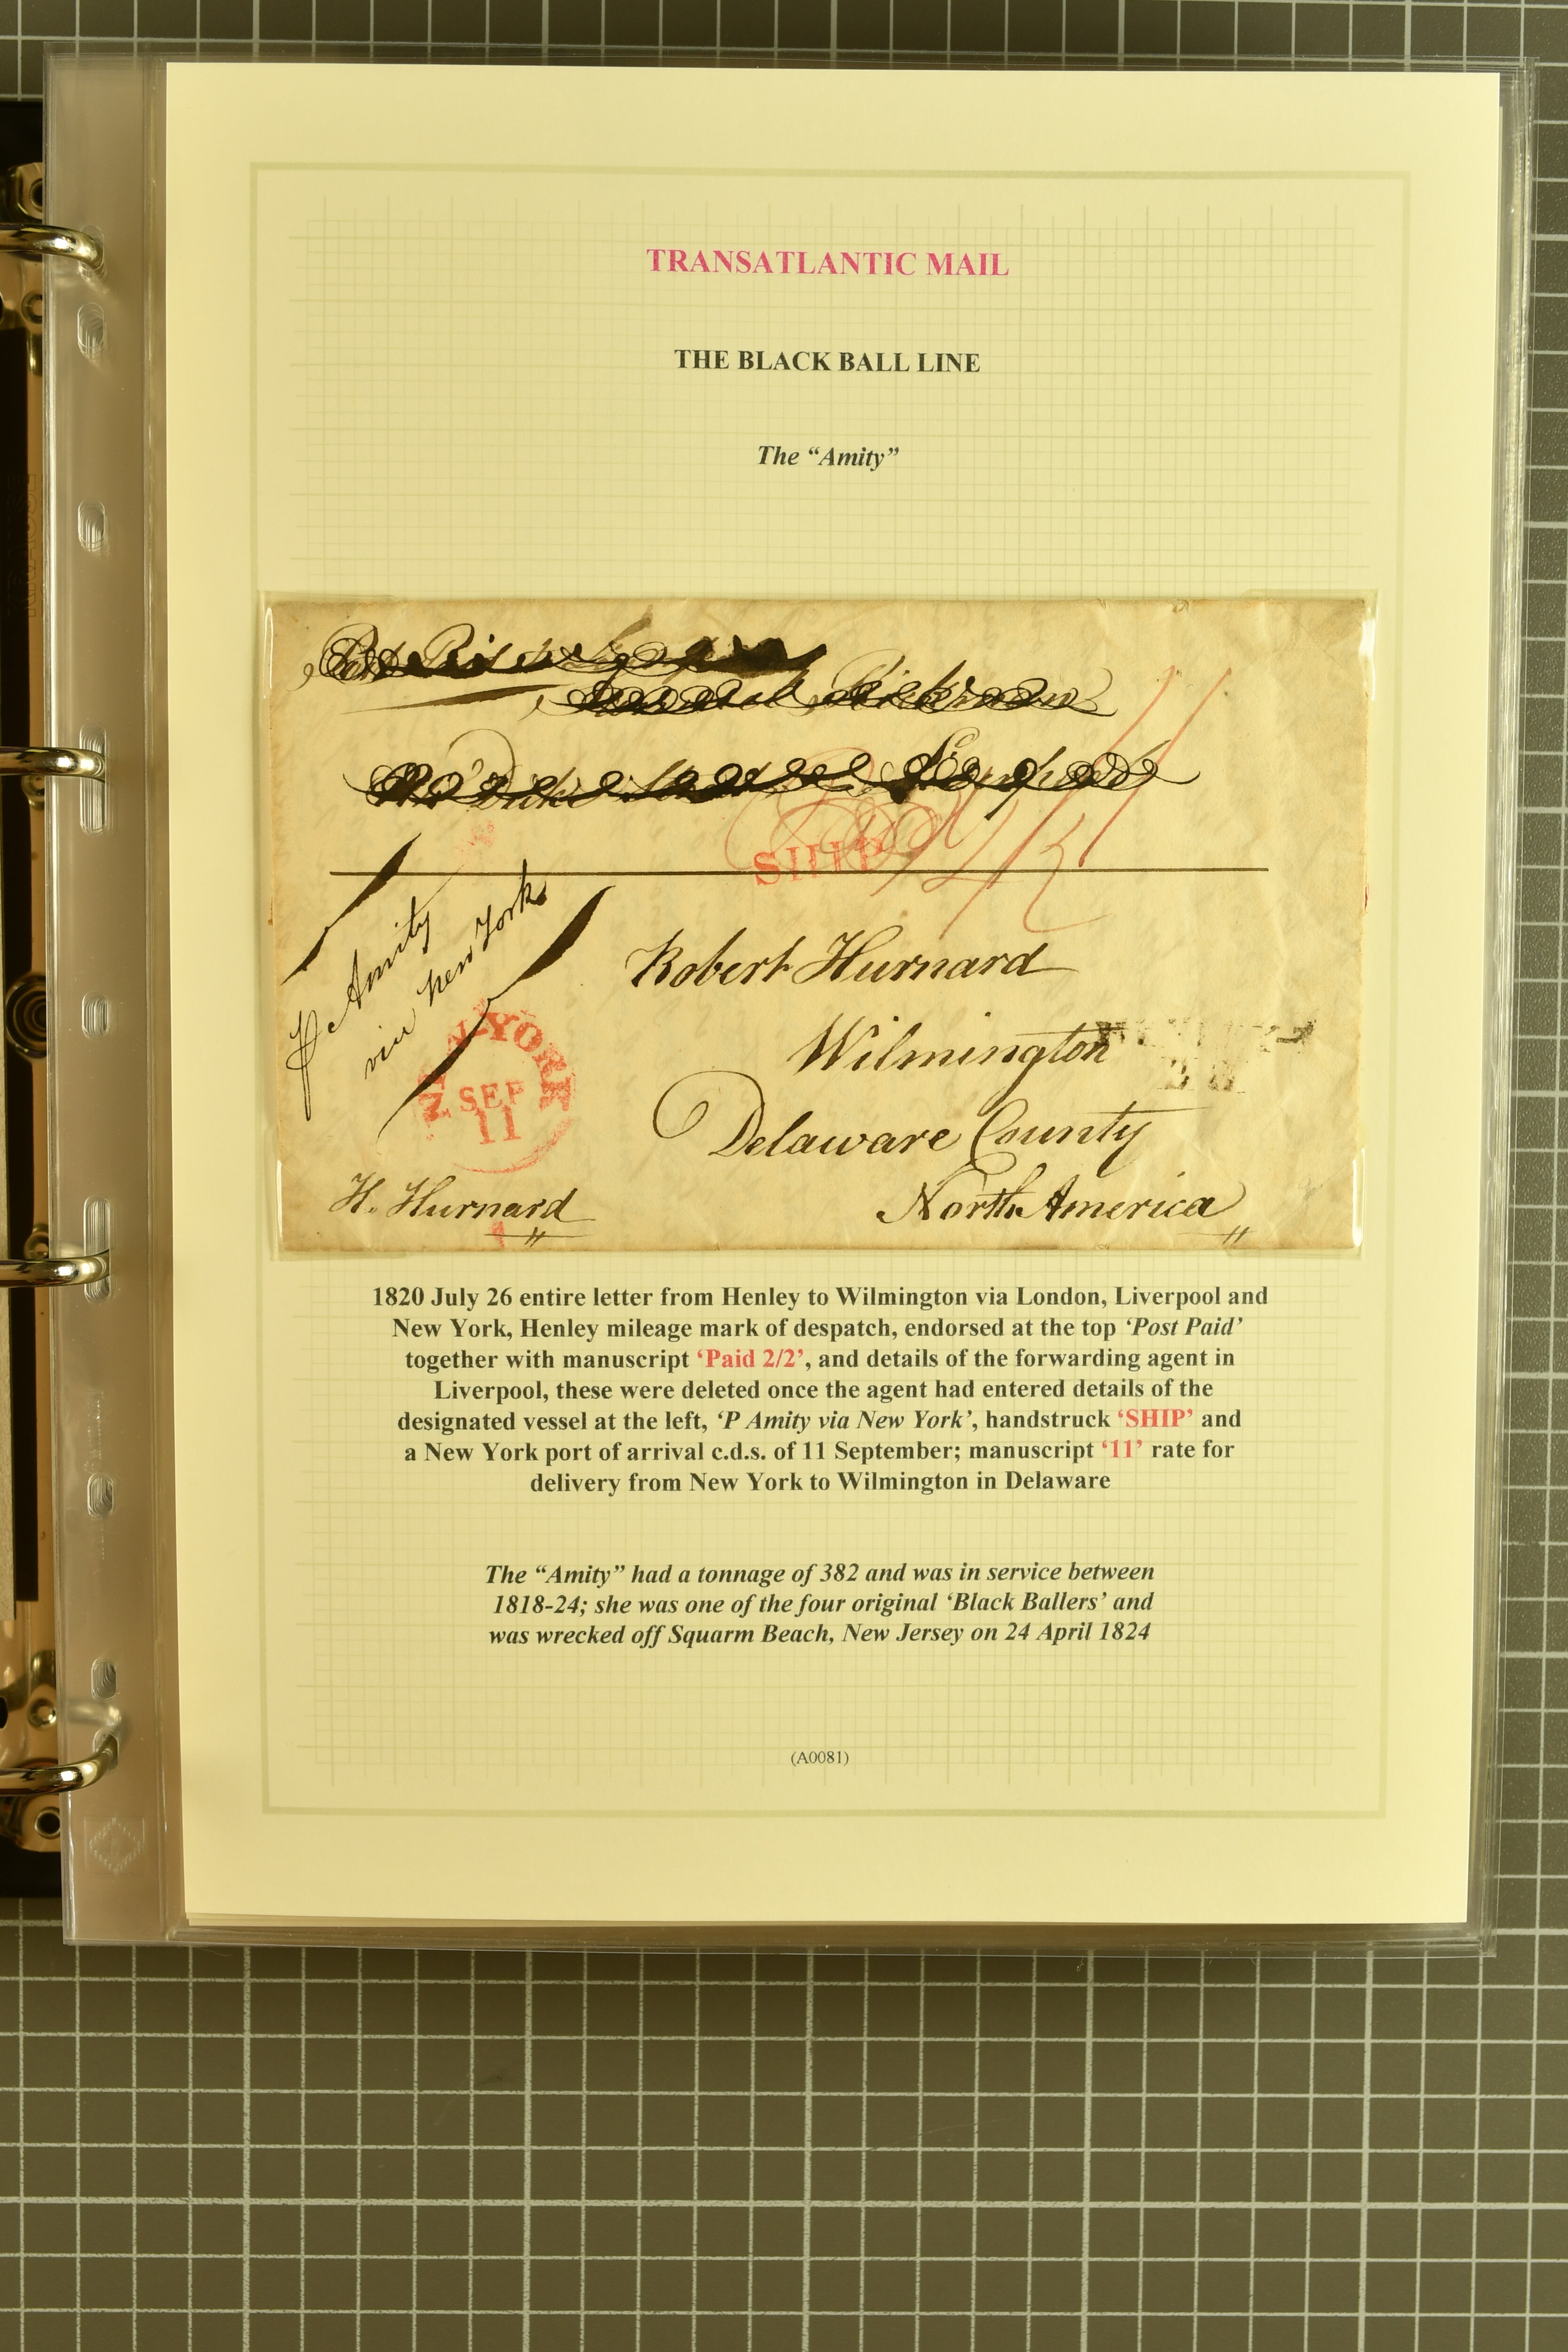 TRANSATLANTIC MAIL
THE BLACK BALL LINE
The “Amity”
SHIP
11
P Amity
via New York
NEW-YORK
SEP
11
Robert Hurnard
Wilmington
Delaware County
North America
H. Hurnard
1820 July 26 entire letter from Henley to Wilmington via London, Liverpool and
New York, Henley mileage mark of despatch, endorsed at the top ‘Post Paid’
together with manuscript ‘Paid 2/2’, and details of the forwarding agent in
Liverpool, these were deleted once the agent had entered details of the
designated vessel at the left, ‘P Amity via New York’, handstruck ‘SHIP’ and
a New York port of arrival c.d.s. of 11 September; manuscript ‘11’ rate for
delivery from New York to Wilmington in Delaware
The “Amity” had a tonnage of 382 and was in service between
1818-24; she was one of the four original ‘Black Ballers’ and
was wrecked off Squarm Beach, New Jersey on 24 April 1824
(A0081)